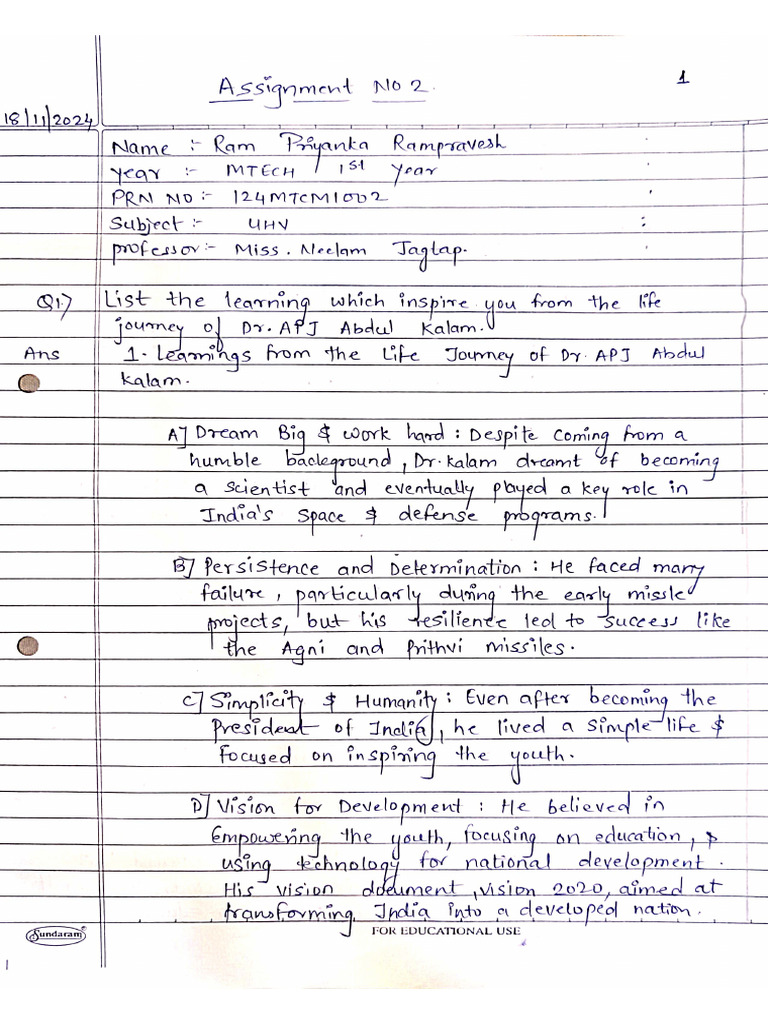 Assignment No 2.
1
18/11/2024
Name :- Ram Priyanka Rampravesh
year :- MTECH 1st year
PRN NO :- 124MTCM1002
Subject :- UHV
professor:- Miss. Neelam Jagtap.
Q1.7) List the learning which inspire you from the life
journey of Dr. APJ Abdul Kalam.
Ans 1. Learnings from the Life Journey of Dr. APJ Abdul
Kalam.
A] Dream Big & work hard : Despite coming from a
humble background, Dr. Kalam dreamt of becoming
a scientist and eventually played a key role in
India's Space & defense programs.
B] Persistence and Determination : He faced many
failure, particularly during the early missle
projects, but his resilience led to success like
the Agni and Prithvi missiles.
C] Simplicity & Humanity : Even after becoming the
President of India, he lived a simple life &
focused on inspiring the youth.
D] Vision for Development : He believed in
Empowering the youth, focusing on education, &
using technology for national development.
His vision document, vision 2020, aimed at
transforming India into a developed nation.
Sundaram
FOR EDUCATIONAL USE